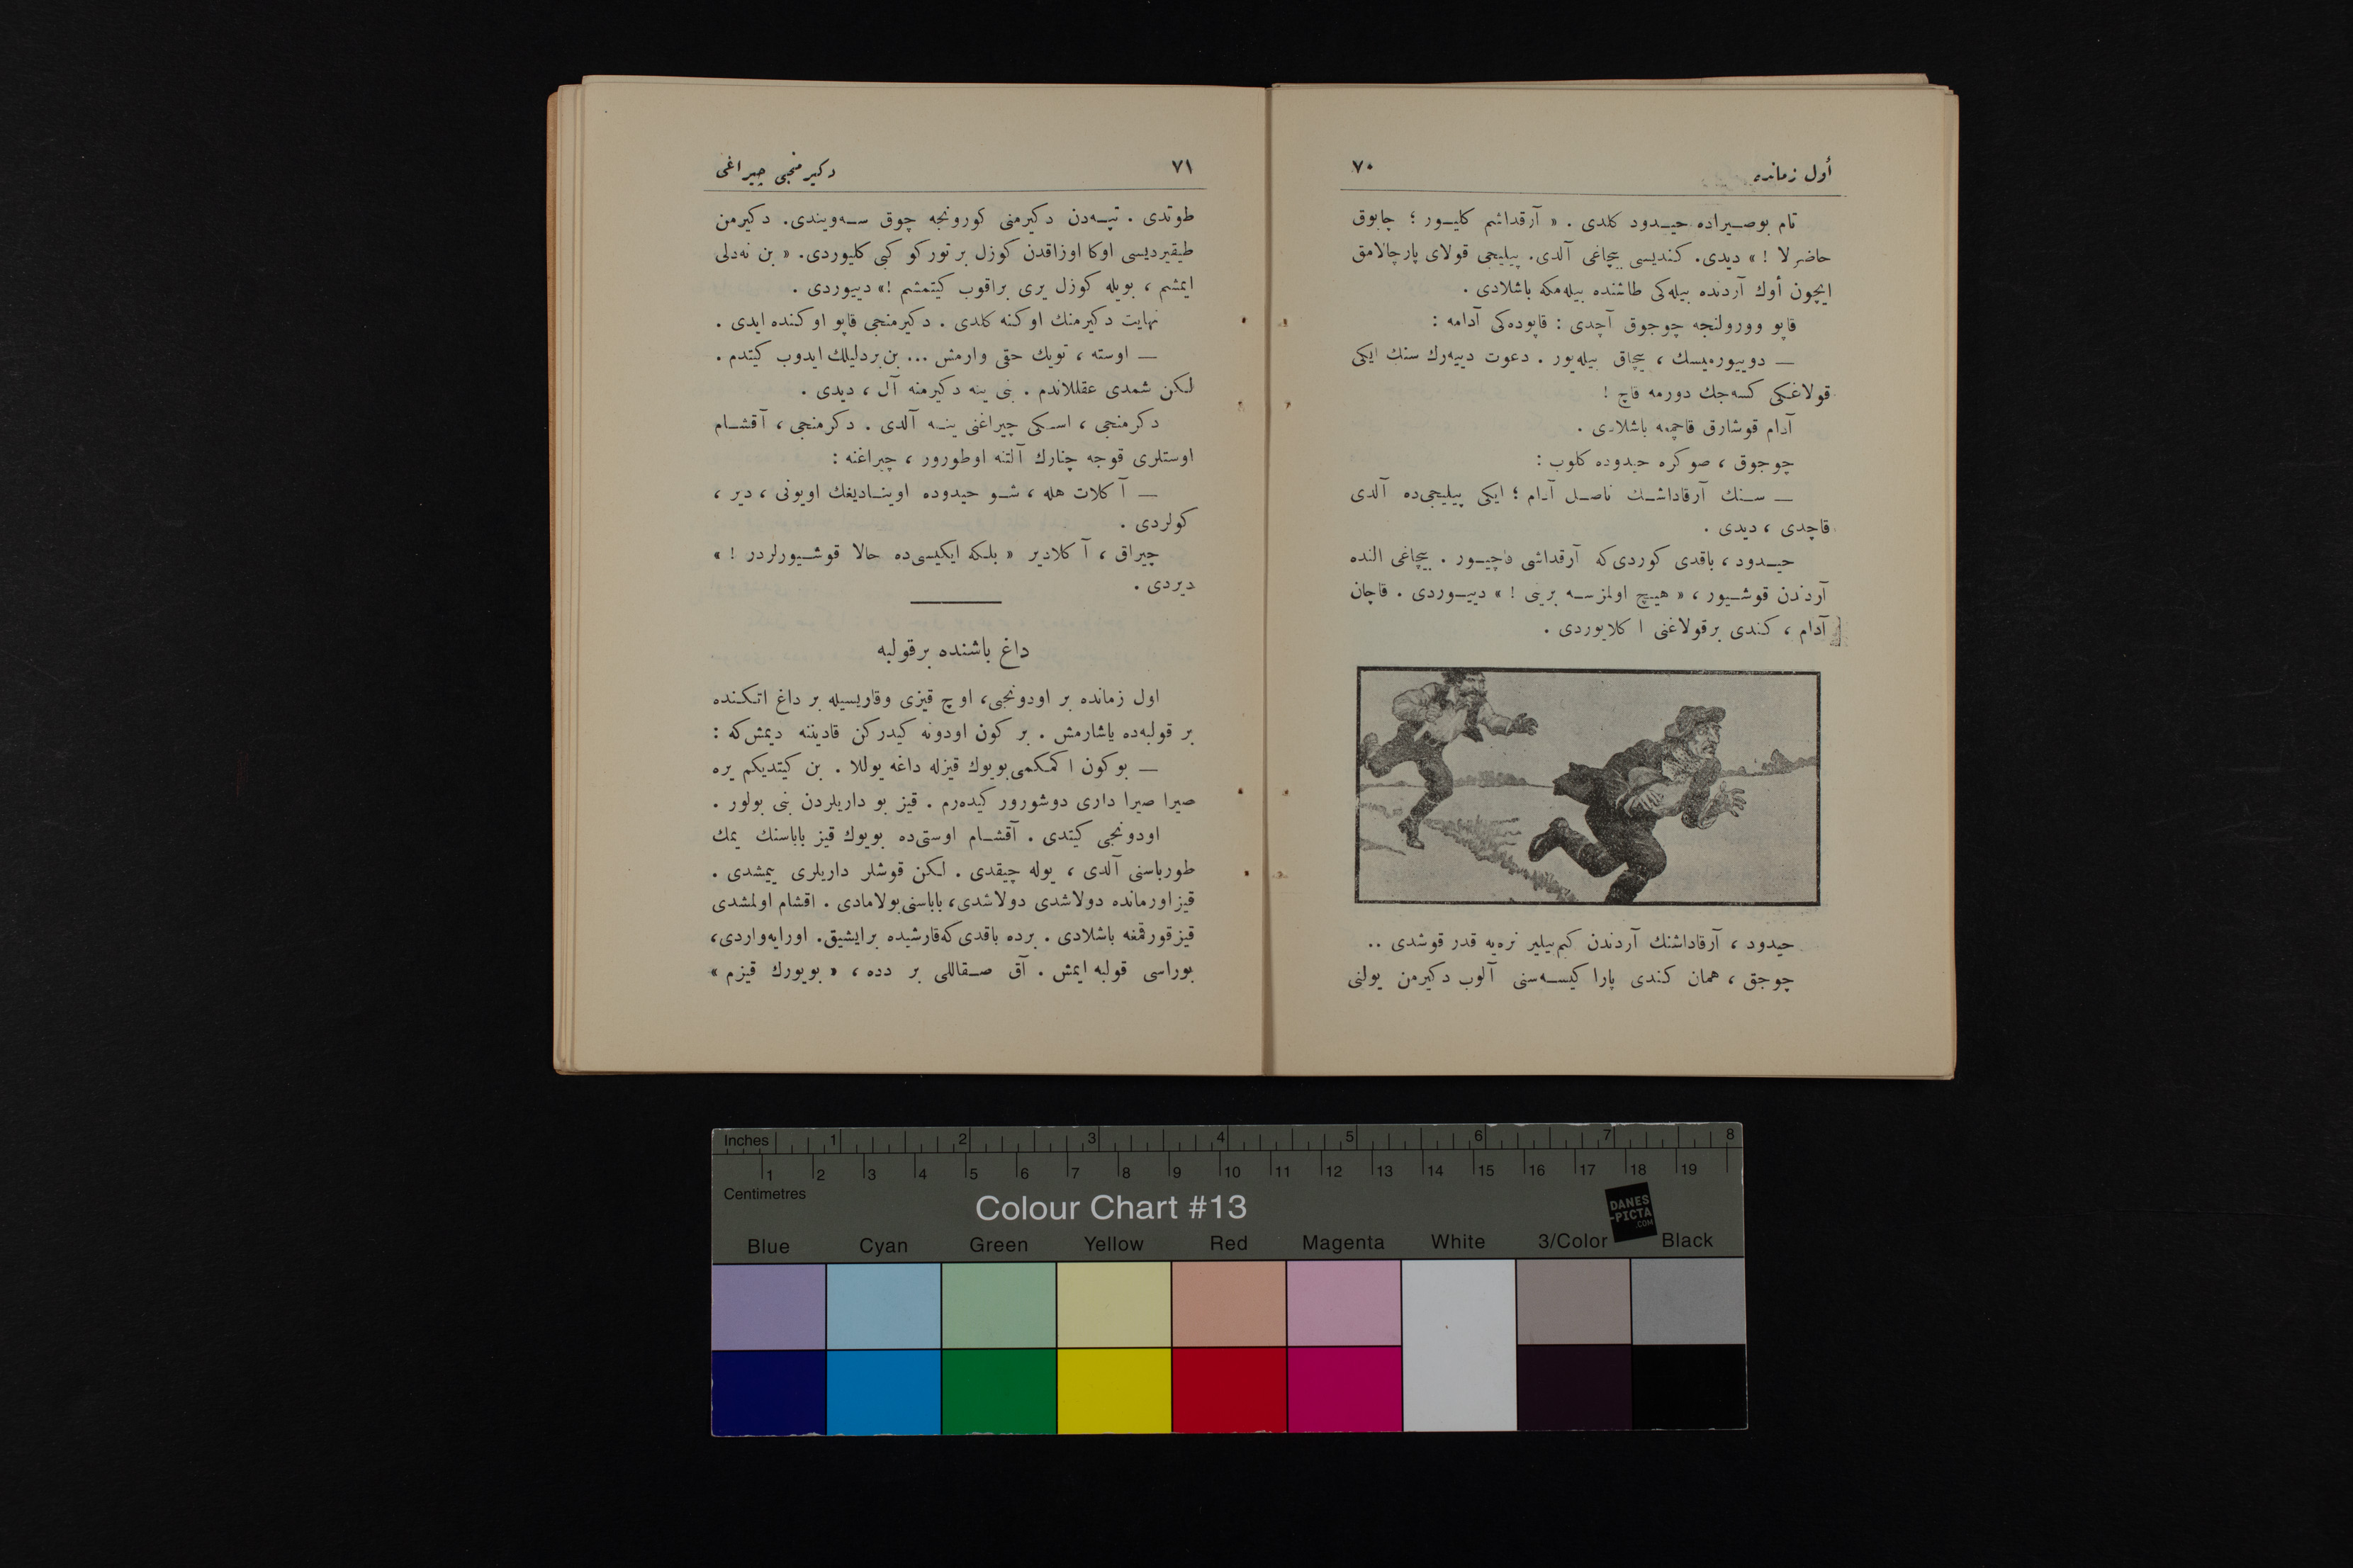 أول زمانده
٧٠
تام بوصیراده حیدود کلدی . « آرقداشم کلیور ؛ چابوق
حاضرلا ! » دیدی. کندیسی بیچاغی آلدی. پیلیجی قولای پارچالامق
ایچون أوك آردنده بیله‌کی طاشنده بیله‌مکه باشلادی .
قاپو وورولنجه چوجوق آچدی : قاپوده‌کی آدامه :
— دوییورمیسك ، بیچاق بیله‌یور . دعوت دییه‌رك سنك ایکی
قولاغکی کسه‌جك دورمه قاچ !
آدام قوشارق قاچمغه باشلادی .
چوجوق ، صوکره حیدوده کلوب :
— سنك آرقاداشك ناصل آدام ؛ ایکی پیلیجی‌ده آلدی
قاچدی ، دیدی .
حیدود ، باقدی کوردی‌که آرقداشی قاچیور . بیچاغی النده
آردندن قوشیور ، « هیچ اولمزسه برینی ! » دییوردی . قاچان
آدام ، کندی برقولاغنی اکلایوردی .
حیدود ، آرقاداشنك آردندن کیم‌بیلیر نره‌یه قدر قوشدی ..
چوجق ، همان کندی پارا کیسه‌سنی آلوب دکیرمن یولنی
٧١
دکیرمنجی چیراغی
طوتدی . تپه‌دن دکیرمنی کورونجه چوق سه‌ویندی. دکیرمن
طیقیردیسی اوکا اوزاقدن کوزل بر تورکو کبی کلیوردی. « بن نه‌دلی
ایمشم ، بویله کوزل یری براقوب کیتمشم !» دییوردی .
نهایت دکیرمنك اوکنه کلدی . دکیرمنجی قاپو اوکنده ایدی .
— اوسته ، تویك حقی وارمش ... بن‌بردلیلك ایدوب کیتدم .
لکن شمدی عقللاندم . بنی ینه دکیرمنه آل ، دیدی .
دکرمنجی ، اسکی چیراغنی ینه آلدی . دکرمنجی ، آقشام
اوستلری قوجه چنارك آلتنه اوطورور ، چیراغنه :
— آکلات هله ، شو حیدوده اوینادیغك اویونی ، دیر ،
کولردی .
چیراق ، آکلادیر « بلکه ایکیسی‌ده حالا قوشیورلردر ! »
دیردی .
داغ باشنده برقولبه
اول زمانده بر اودونجی، اوچ قیزی وقاریسیله بر داغ اتکنده
بر قولبه‌ده یاشارمش . بر کون اودونه کیدرکن قادیننه دیمش‌که :
— بوکون اکمکمی بویوك قیزله داغه یوللا . بن کیتدیکم یره
صیرا صیرا داری دوشورور کیده‌رم . قیز بو داریلردن بنی بولور .
اودونجی کیتدی . آقشام اوستی‌ده بویوك قیز باباسنك یمك
طورباسنی آلدی ، یوله چیقدی . لکن قوشلر داریلری ییمشدی .
قیزاورمانده دولاشدی دولاشدی، باباسنی‌بولامادی . اقشام اولمشدی
قیزقورقمغه باشلادی . برده باقدی‌که‌قارشیده برایشیق. اورایه‌واردی،
بوراسی قولبه ایمش . آق صقاللی بر دده ، « بویورك قیزم »
Inches 1 2 3 4 5 6 7 8
1 2 3 4 5 6 7 8 9 10 11 12 13 14 15 16 17 18 19
Centimetres
Colour Chart #13
DANES
-PICTA
.COM
Blue Cyan Green Yellow Red Magenta White 3/Color Black